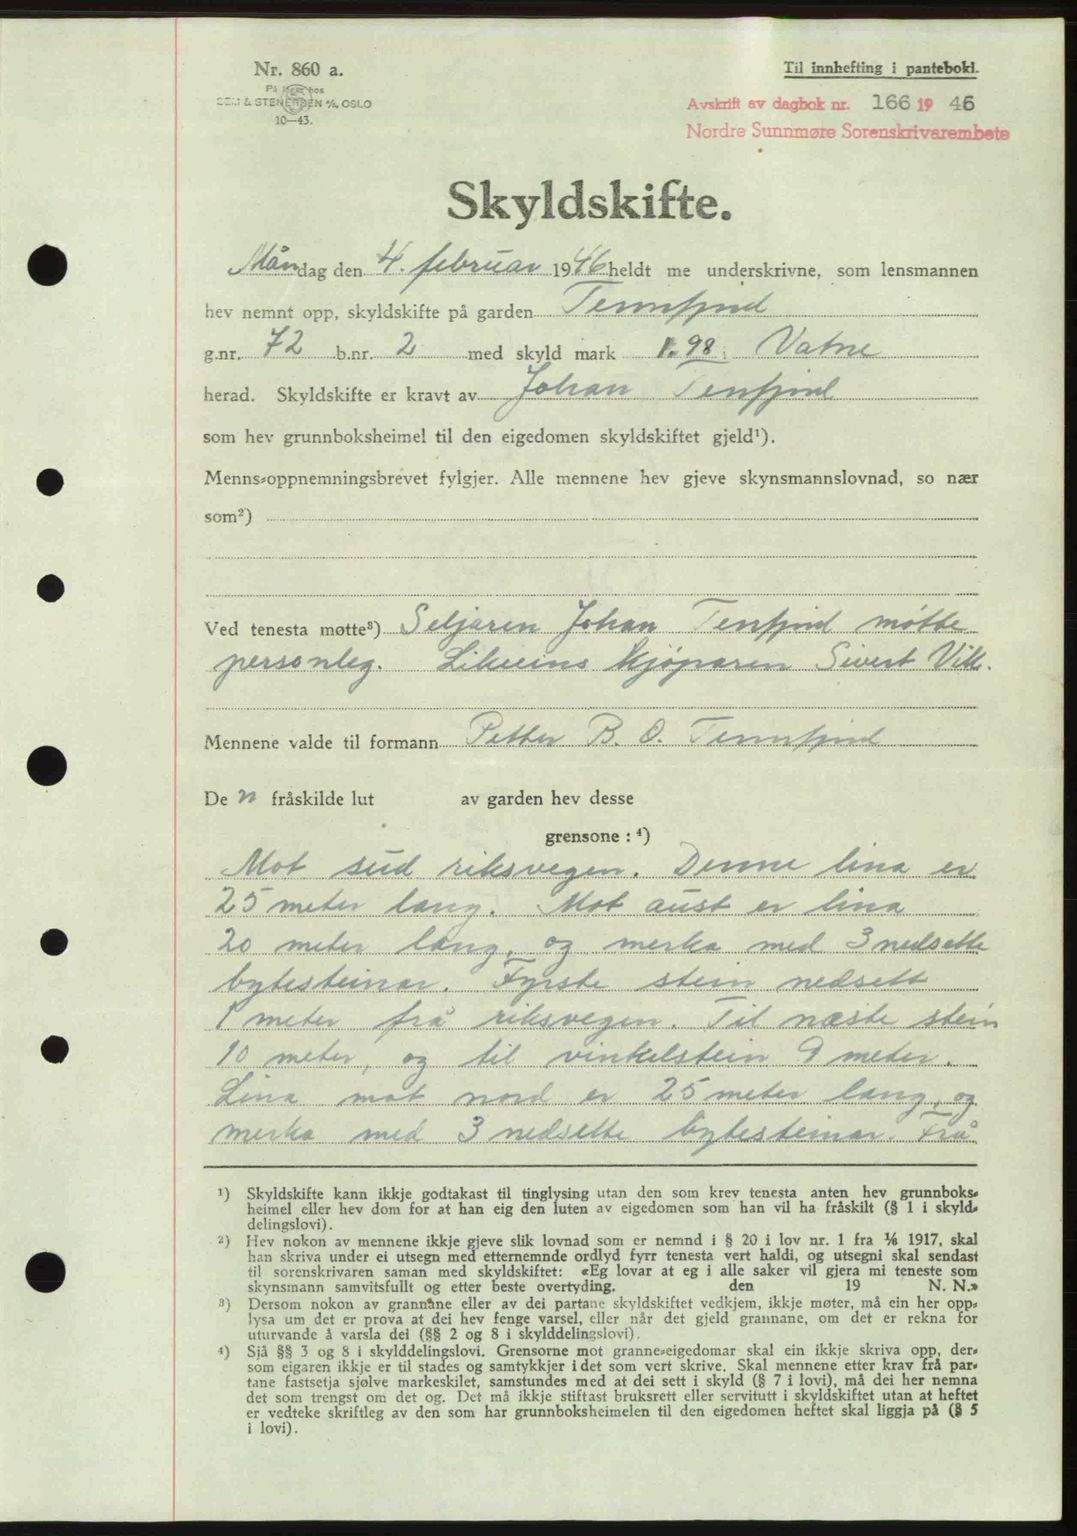 Nr. 860 a.
Til innhefting i panteboki.
På lager hos
SEM & STENERSEN A/S, OSLO
10—43.
Avskrift av dagbok nr. 166 19 46
Nordre Sunnmøre Sorenskrivarembete
Skyldskifte.
Måndag den 4. februar 1946 heldt me underskrivne, som lensmannen
hev nemnt opp, skyldskifte på garden Tennfjord
g.nr. 72 b.nr. 2 med skyld mark 1.98 i Vatne
herad. Skyldskifte er kravt av Johan Tenfjord
som hev grunnboksheimel til den eigedomen skyldskiftet gjeld¹).
Menns-oppnemningsbrevet fylgjer. Alle mennene hev gjeve skynsmannslovnad, so nær
som²)
Ved tenesta møtte³) Seljaren Johan Tenfjord møtte
personleg. Likeeins kjøparen Sivert Vik.
Mennene valde til formann Petter B. O. Tennfjord
De n fråskilde lut av garden hev desse
grensone : ⁴)
Mot sud riksvegen. Denne lina er
25 meter lang. Mot aust er lina
20 meter lang, og merka med 3 nedsette
bytesteinar. Fyrste stein nedsett
1 meter frå riksvegen. Til næste stein
10 meter, og til vinkelstein 9 meter.
Lina mot nord er 25 meter lang, og
merka med 3 nedsette bytesteinar. Frå
¹) Skyldskifte kann ikkje godtakast til tinglysing utan den som krev tenesta anten hev grunnboks-
heimel eller hev dom for at han eig den luten av eigedomen som han vil ha fråskilt (§ 1 i skyld-
delingslovi).
²) Hev nokon av mennene ikkje gjeve slik lovnad som er nemnd i § 20 i lov nr. 1 fra 1/6 1917, skal
han skriva under ei utsegn med etternemnde ordlyd fyrr tenesta vert haldi, og utsegni skal sendast
til sorenskrivaren saman med skyldskiftet: «Eg lovar at eg i alle saker vil gjera mi teneste som
skynsmann samvitsfullt og etter beste overtyding. den 19 N. N.»
³) Dersom nokon av grannane eller av dei partane skyldskiftet vedkjem, ikkje møter, må ein her opp-
lysa um det er prova at dei hev fenge varsel, eller når det gjeld grannane, om det er rekna for
uturvande å varsla dei (§§ 2 og 8 i skylddelingslovi).
⁴) Sjå §§ 3 og 8 i skylddelingslovi. Grensorne mot granne-eigedomar skal ein ikkje skriva opp, der-
som eigaren ikkje er til stades og samtykkjer i det som vert skrive. Skal mennene etter krav frå par-
tane fastsetja sjølve markeskilet, samstundes med at dei sett i skyld (§ 7 i lovi), må dei her nemna
det som trengst om det og. Det må ikkje stiftast bruksrett eller servitutt i skyldskiftet utan at heftet
er vedteke skriftleg av den som har grunnboksheimelen til den eigedomen heftet skal liggja på (§ 5
i lovi).